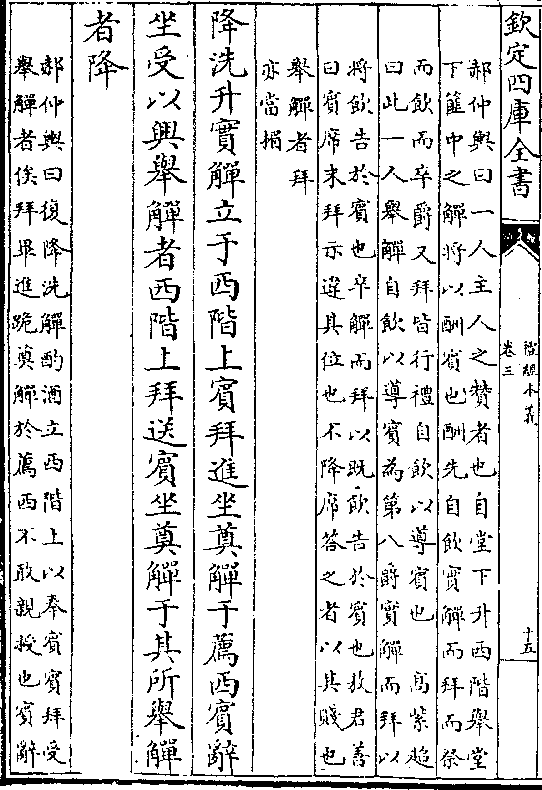 欽定四庫全書
儀禮小義
卷三
十五
郝仲輿曰一人主人之贊者也自堂下升西階舉堂
下篚中之觶將以酬賓也酬先自飲實觶而拜而祭
而飲而卒爵又拜皆行禮自飲以導賓也　高紫超
曰此一人舉觶自飲以導賓為第八爵實觶而拜以
將飲告於賓也卒觶而拜以既飲告於賓也敖君善
曰賓席末拜示違其位也不降席答之者以其賤也
舉觶者拜
亦當楣
降洗升實觶立于西階上賓拜進坐奠觶于薦西賓辭
坐受以興舉觶者西階上拜送賓坐奠觶于其所舉觶
者降
郝仲輿曰復降洗觶酌酒立西階上以奉賓賓拜受
舉觶者俟拜畢進跪奠觶於薦西不敢親授也賓辭